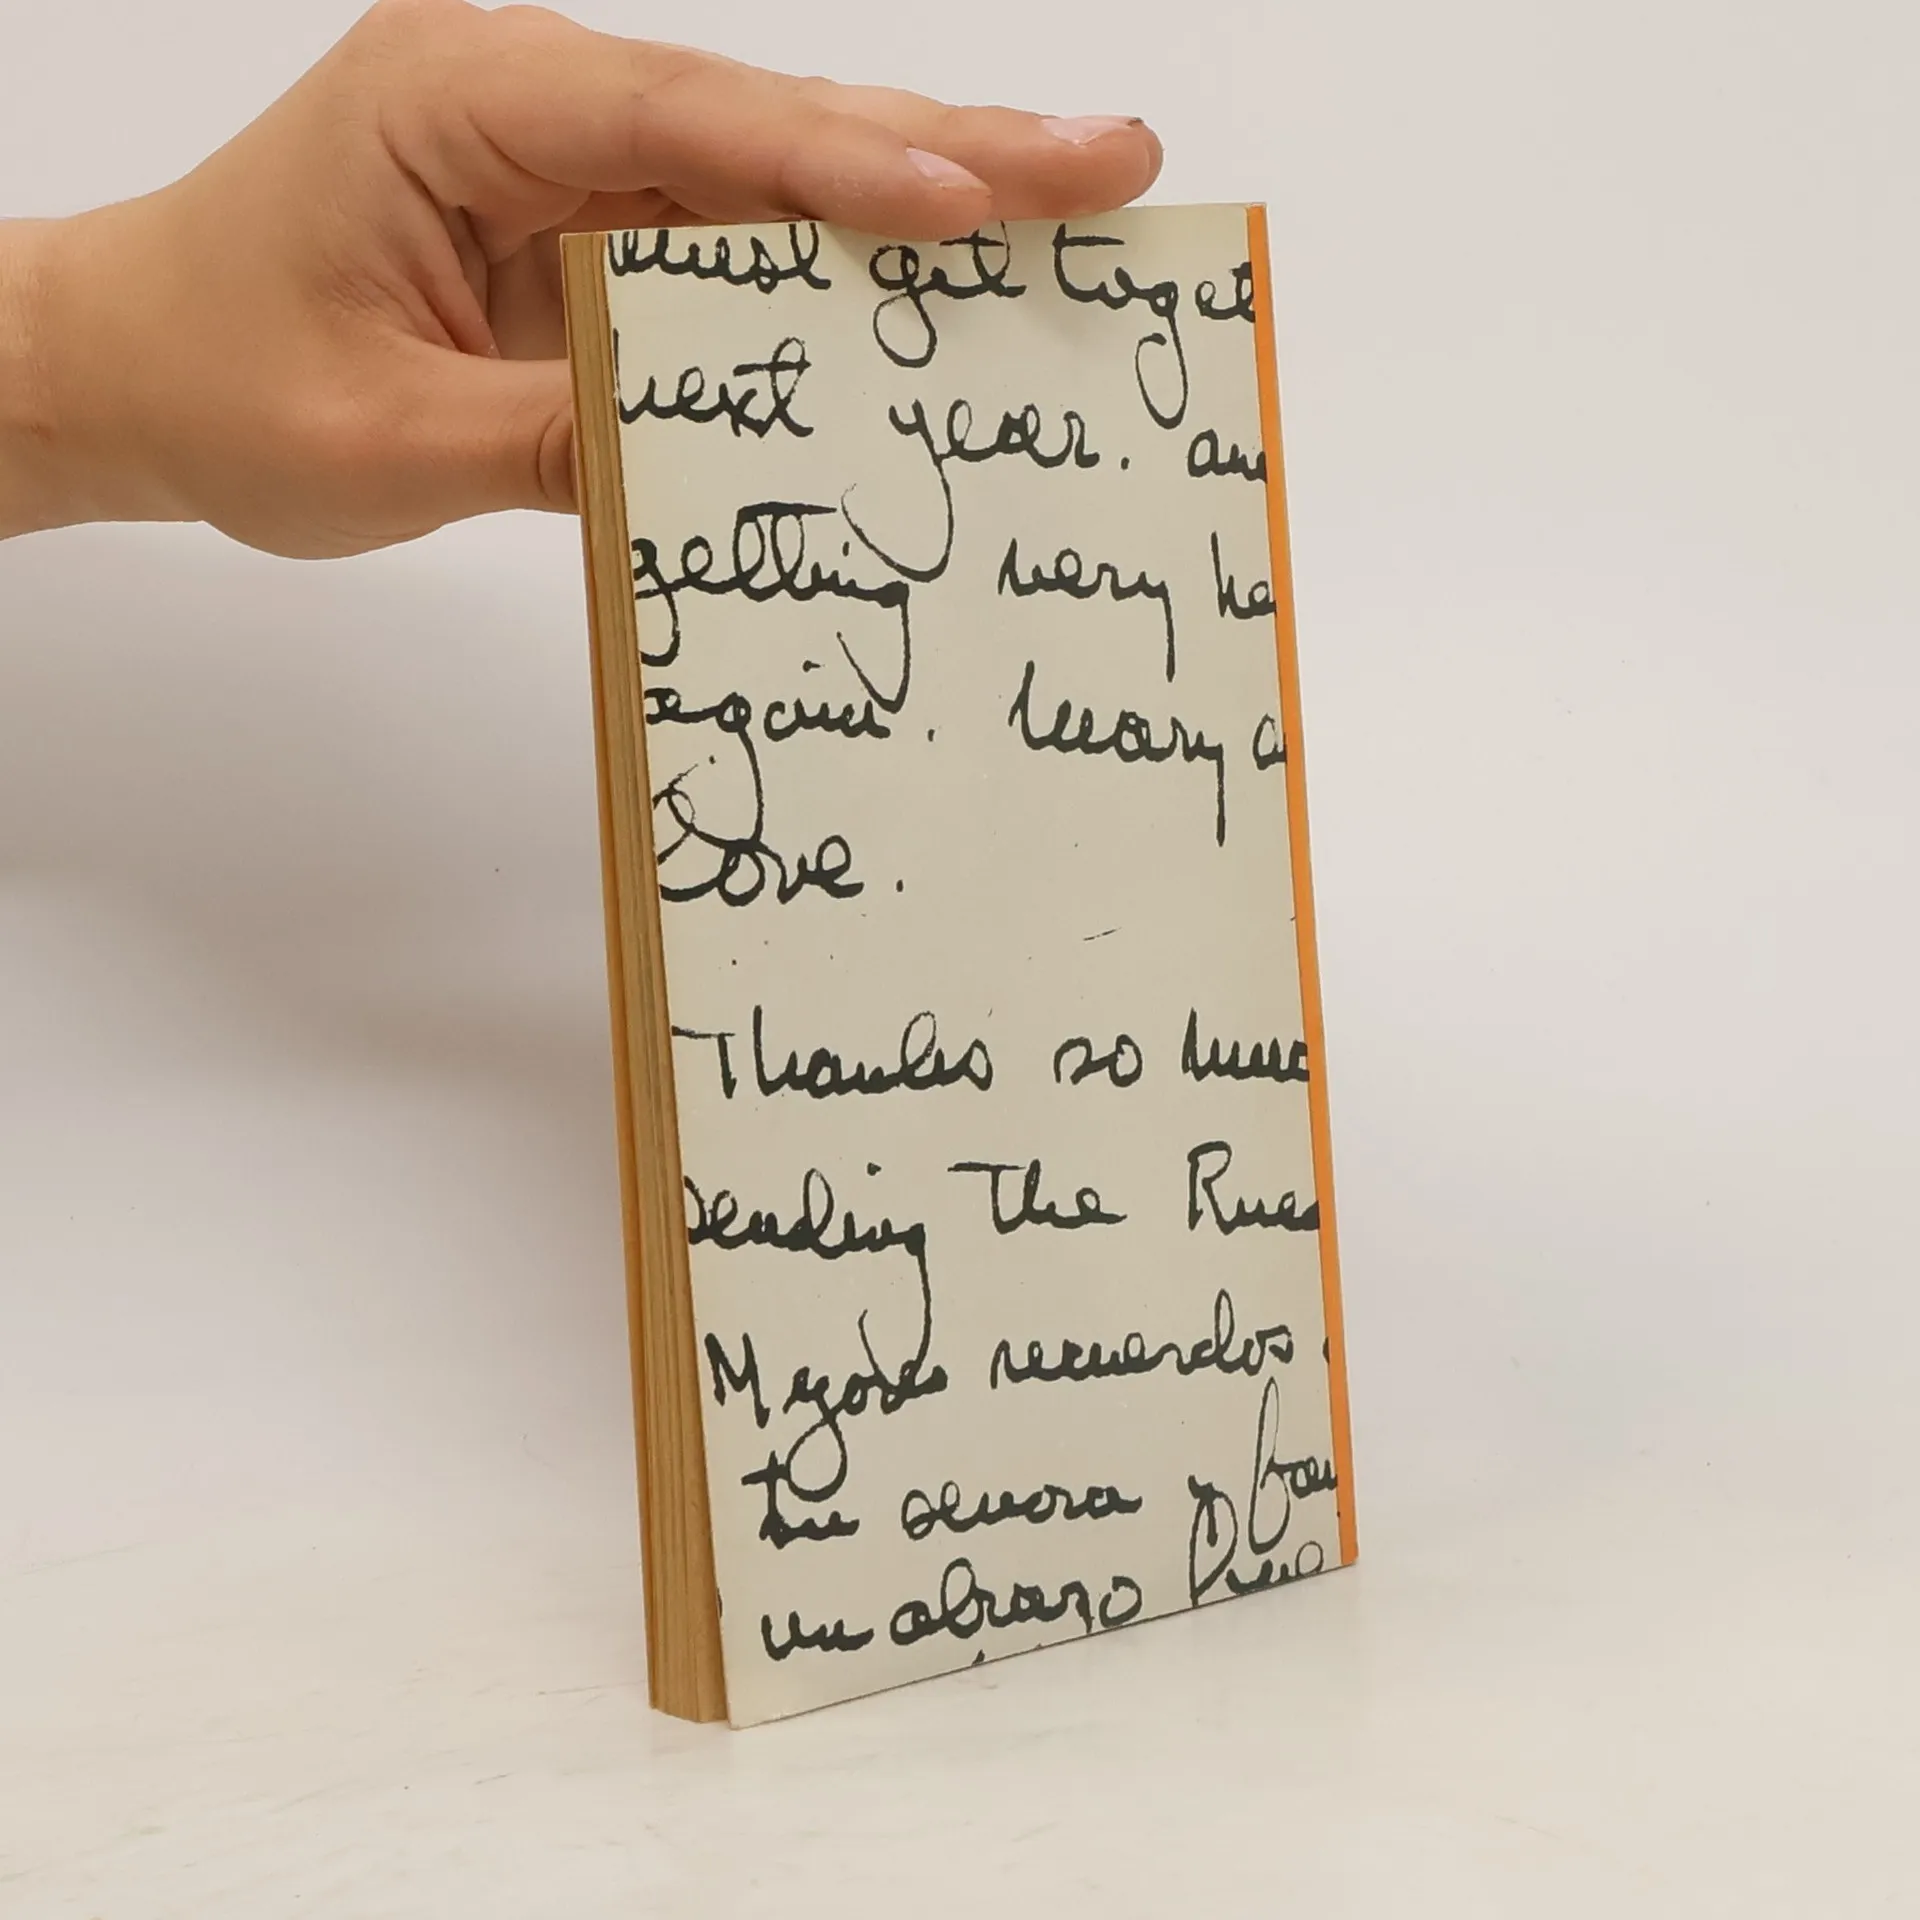 must get toget
next year. and
getting very he
again. Mary a
Love.
Thanks so muc
sending the Rue
Mejores recuerdos
tu senora y fam
un abrazo